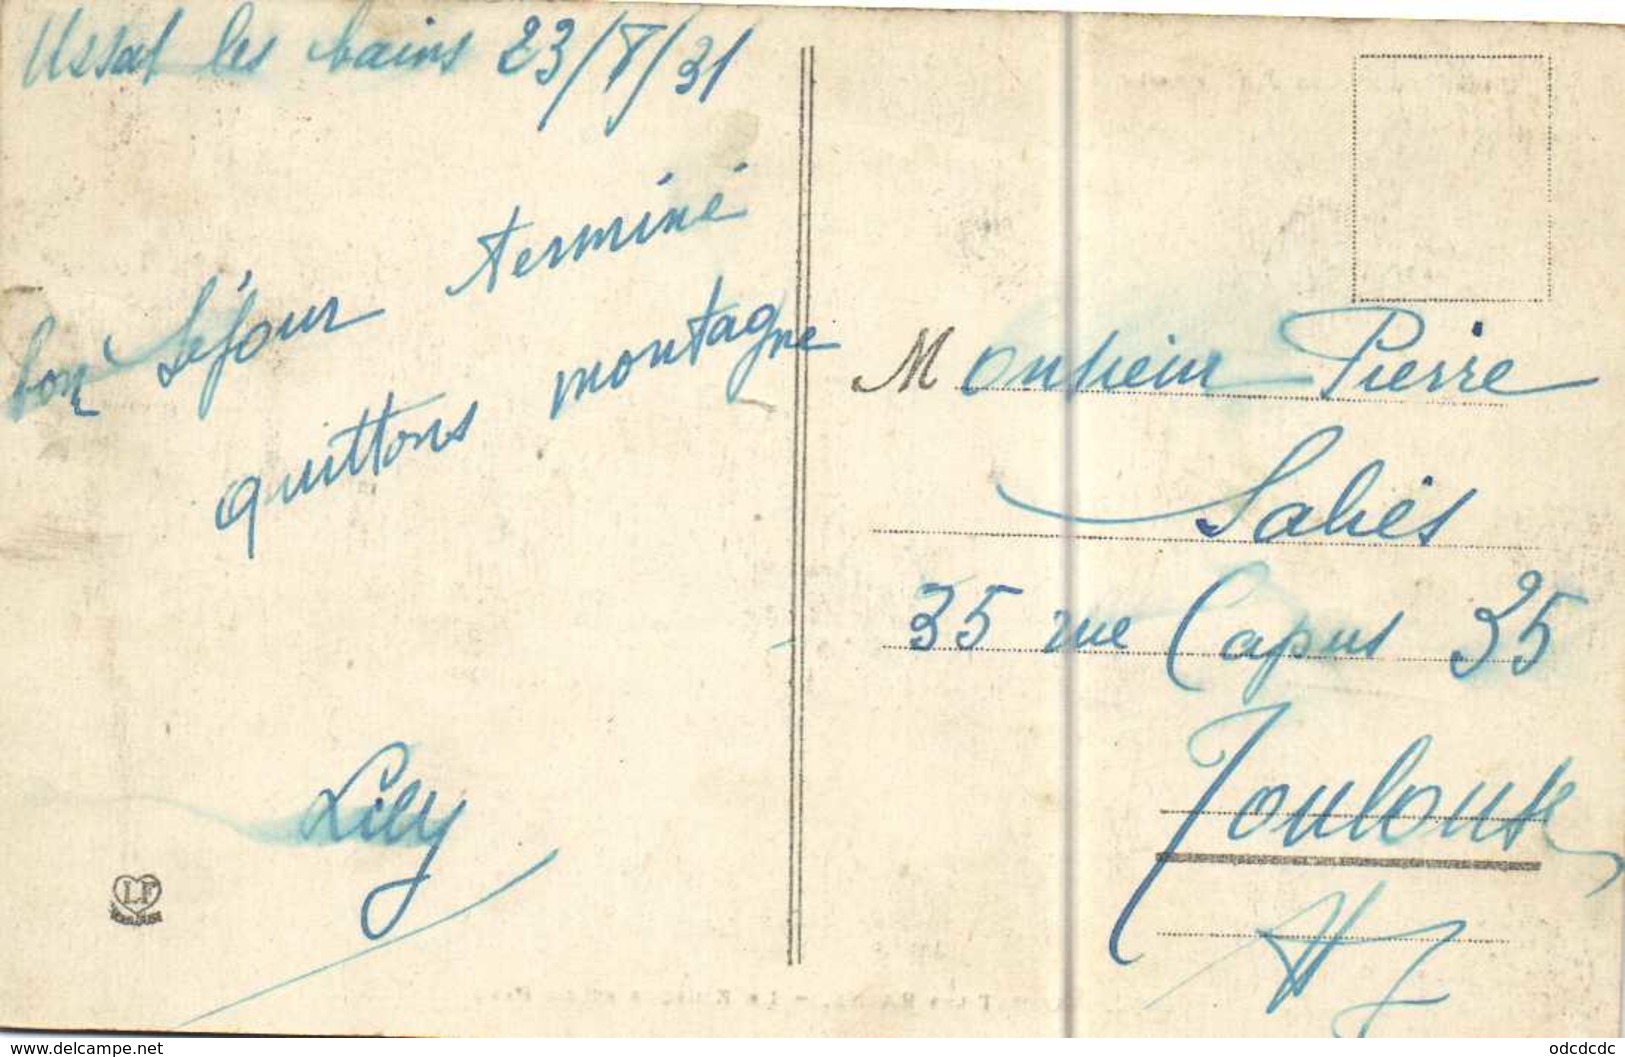 Ussat les bains 23/8/31
bon séjour terminé
quittons montagne
Lily
LF
TOULOUSE
Monsieur Pierre
Saliés
35 rue Capus 35
Toulouse
H G
www.delcampe.net
odcdcdc